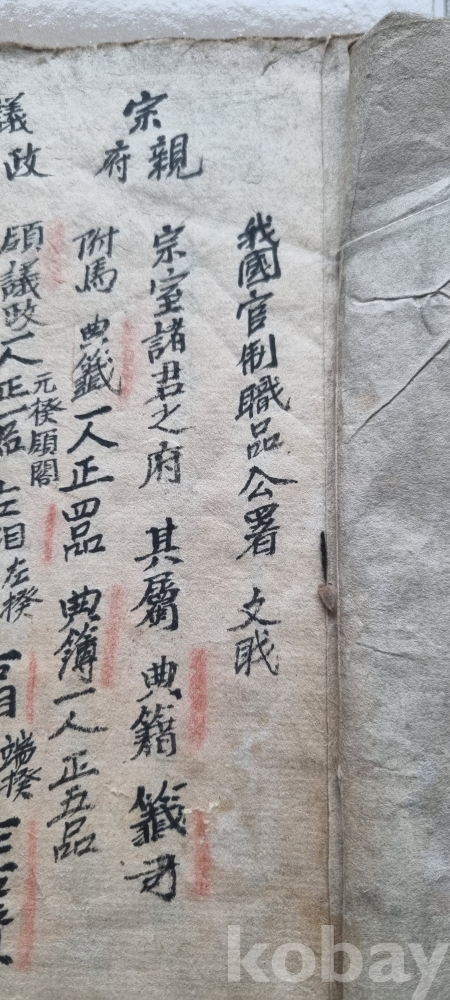 我國官制職品公署 文戝
宗親府
宗室諸君之府 其屬 典籍 籤司
附馬 典籤一人正四品 典簿一人正五品
議政
領議政一人正一品 元揆領閣 左相左揆 右相 端揆
kobay